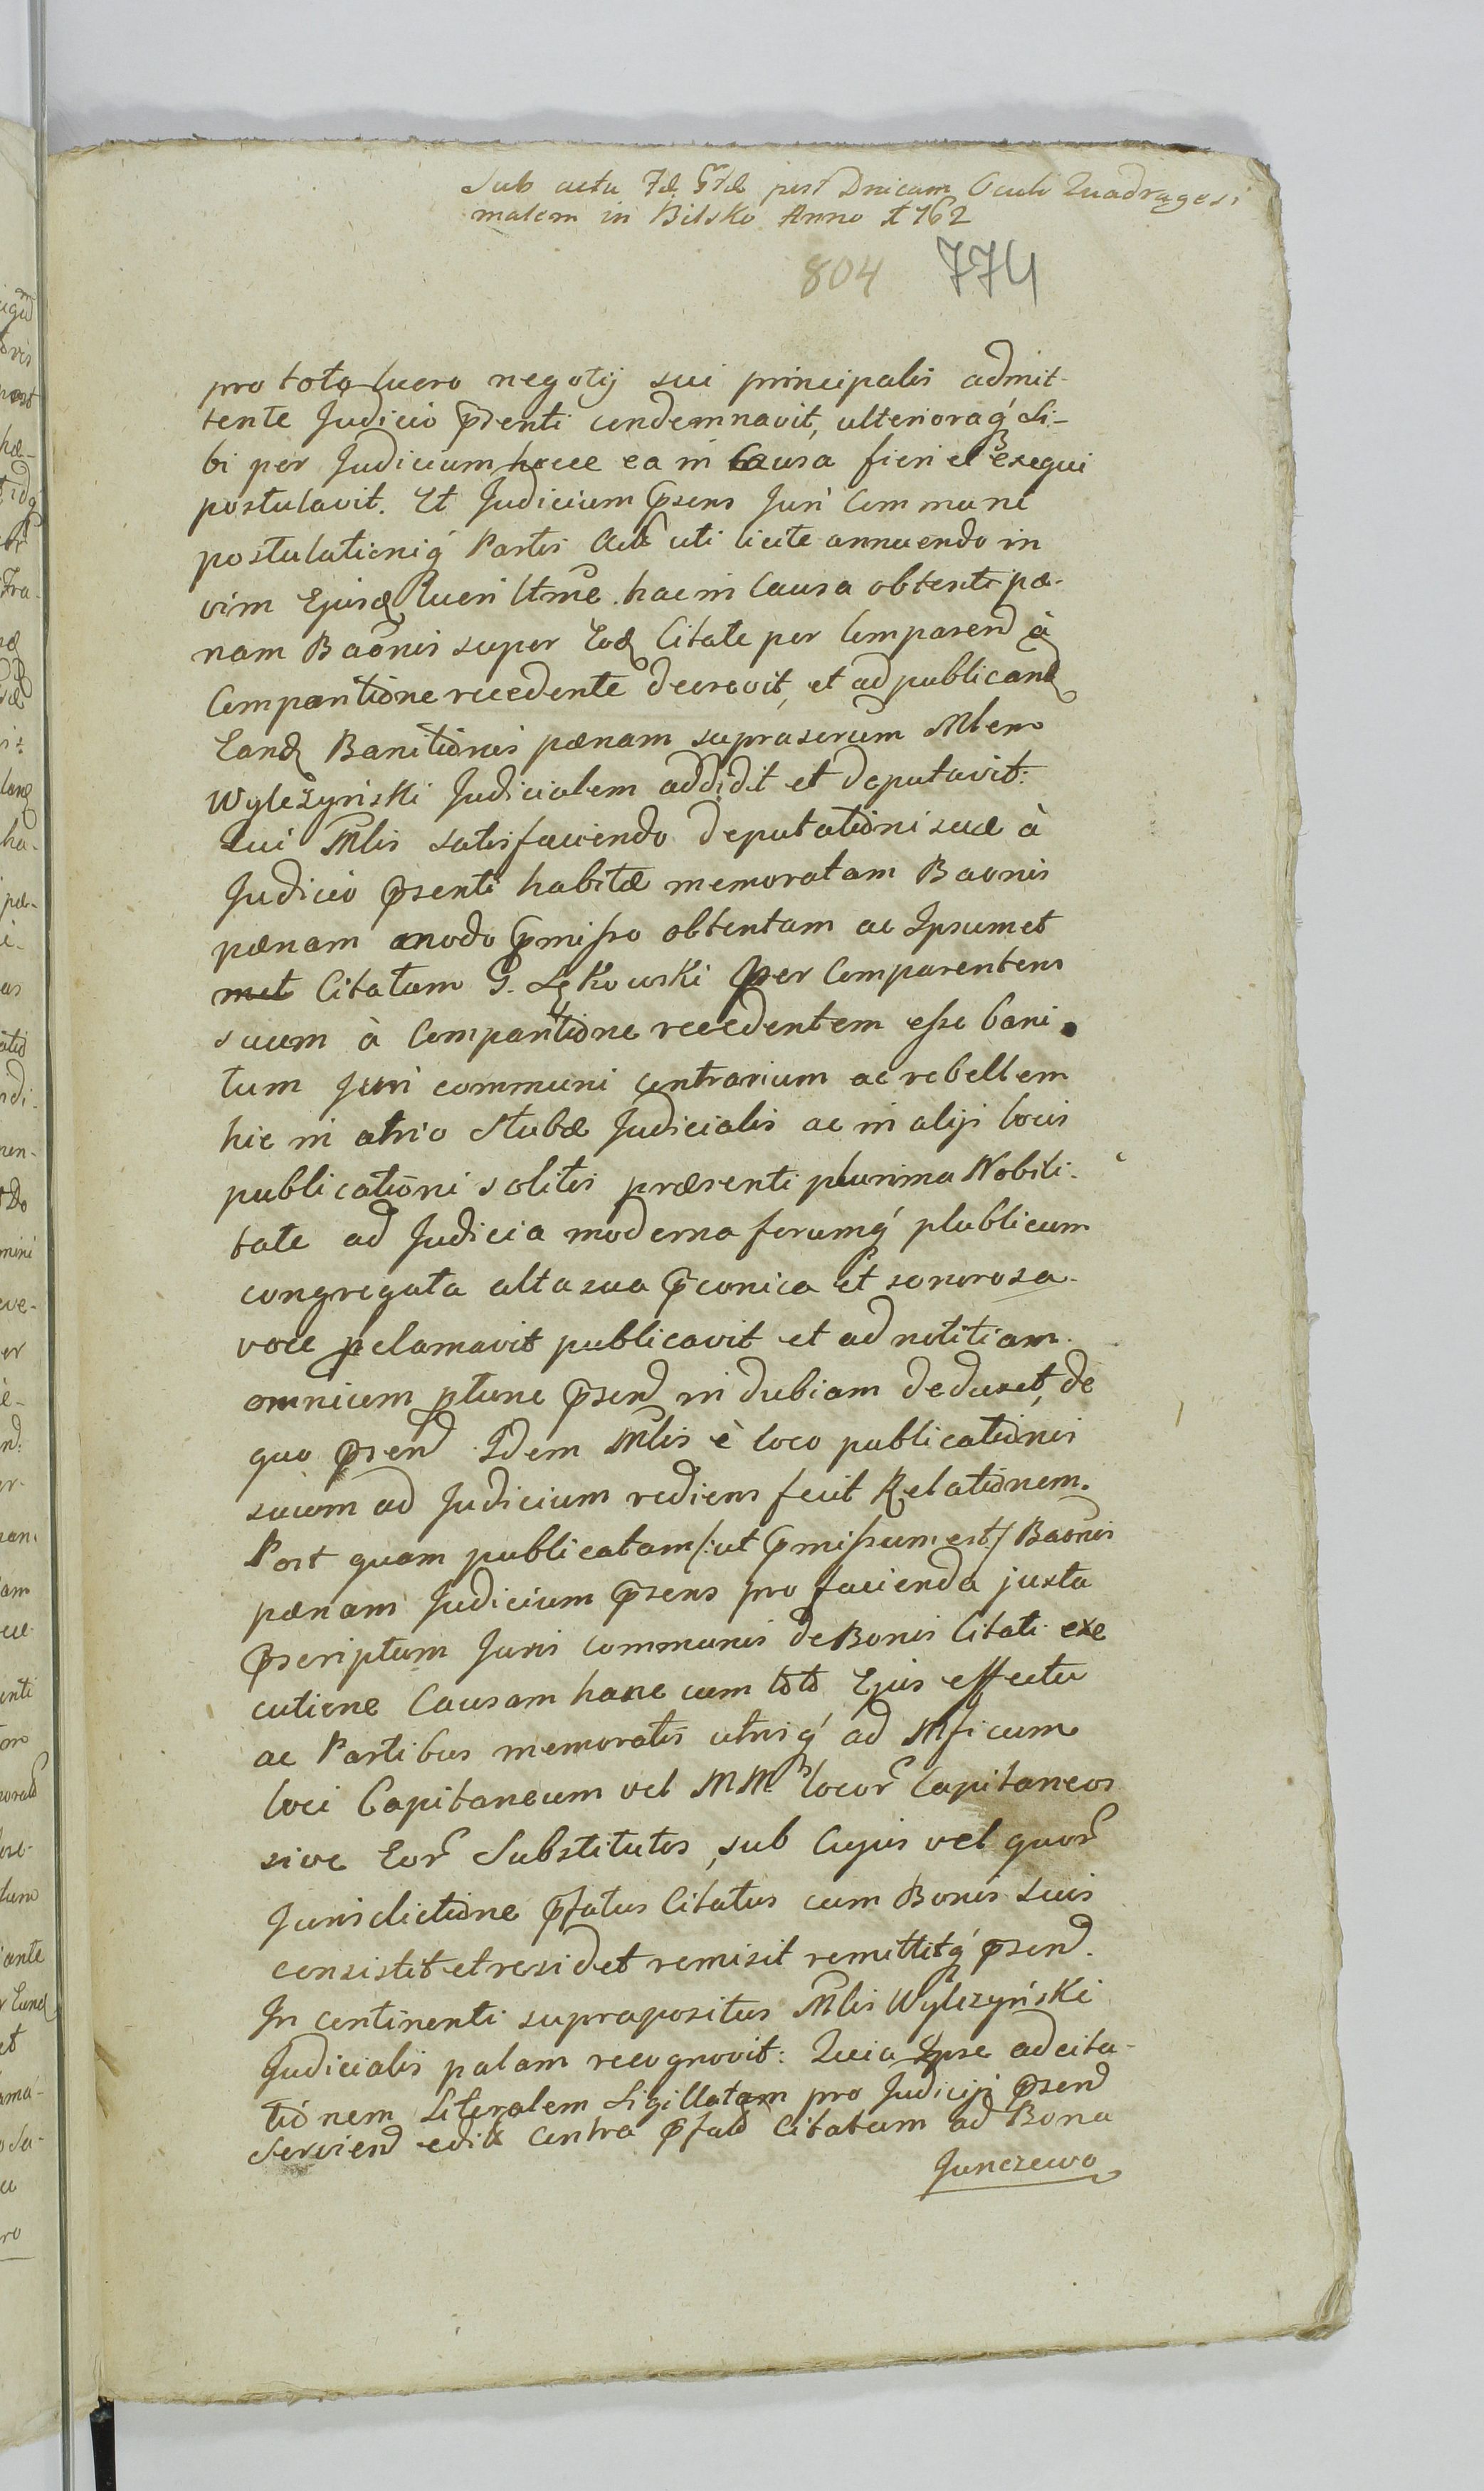 Sub actu Fđ Gđ post Dnicam Oculi Quadragesi
malem in Bilsko Anno 1762
804 774
pro toto lucro negotij sui principalis admit-
tente Judicio prsenti condemnavit, ulterioraq́ Si-
bi per Judicium hocce ea in Causa fieri et exequi
postulavit. Et Judicium prsens Juri Communi
postulationiq́ Partis Act uti licite annuendo in
vim Ejusđ lucri ltme hac in Causa obtenti pæ-
nam Baõnis super Eođ Citato per Comparenđ à
Comparitione recedente decrevit, et ad publicanđ
Eanđ Banitionis pænam suprascrum Mlem
Wyleżyński Judicialem addidit et deputavit:
Qui Mlis satisfaciendo deputationi suæ à
Judicio prsenti habitæ memoratam Baonis
pænam modo prmisso obtentam ac Ipsumet
met Citatum G. Lękowski per Comparentem
suum à Comparitione recedentem esse bani
tum Juri communi contrarium ac rebellem
hic in atrio Stubæ Judicialis ac in alijs locis
publicationi solitis præsenti plurima Nobili-
tate ad Judicia moderna forumq́ plublicum
congregata alta sua prconica et sonorosa
voce pclamavit publicavit et ad notitiam
omnium ptunc prsenđ in dubiam deduxit, de
quo prsenđ Idem Mlis è loco publicationis
suum ad Judicium rediens fecit Relationem.
Post quam publicatam /:ut prmissum est/ Baõnis
pænam Judicium prsens pro facienda juxta
prscriptum Juris communis de Bonis Citati exe
cutione Causam hanc cum toto Ejus effectu
ac Partibus memoratis utrisq́ ad Mficum
loci Capitaneum vel MM. locor Capitaneos
sive Eor Substitutos, sub Cujus vel quor
Jurisdictione prfatus Citatus cum Bonis suis
consistit et residet remisit remittitq́ prsenđ.
In continenti suprapositus Mlis Wyleżyński
Judicialis palam recognovit: Quia Ipse ad cita-
tionem Literalem Sigillatam pro Judicijs prsenđ
Servienđ edit contra prfatđ Citatum ad Bona
Junczewo